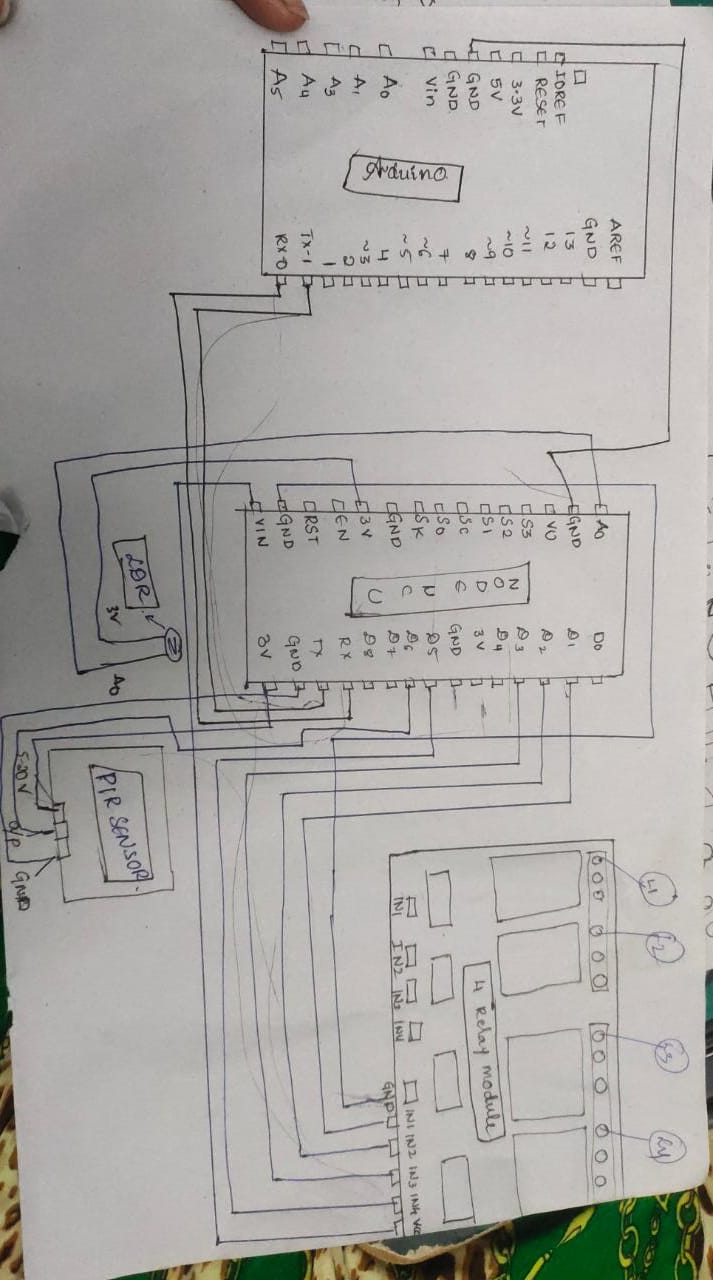 IOREF
RESET
3.3V
5V
GND
GND
Vin
A0
A1
A3
A4
A5
Arduino
AREF
GND
13
12
~11
~10
~9
8
7
~6
~5
4
~3
2
1
TX-1
RX-0
A0
GND
VU
S3
S2
S1
SC
S0
SK
GND
3V
EN
RST
GND
VIN
NODE
MCU
D0
D1
D2
D3
D4
3V
GND
D5
D6
D7
D8
RX
TX
GND
3V
LDR
3V
A0
PIR SENSOR
5-20V
O/P
GND
L1
L2
L3
L4
4 Relay module
IN1
IN2
IN3
IN4
GND
IN1
IN2
IN3
IN4
VCC